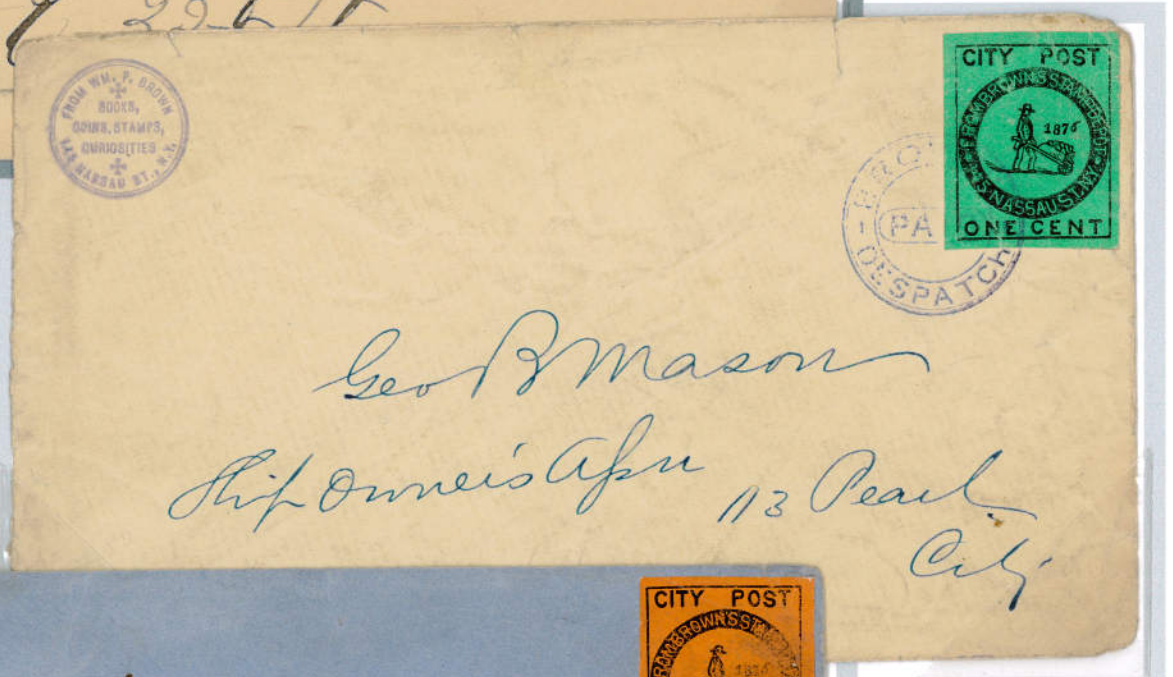 FROM WM. P. BROWN
BOOKS,
COINS, STAMPS,
CURIOSITIES
145 NASSAU ST., N.Y.
CITY POST
FROM BROWN'S STAMP DEPOT
1876
145 NASSAU ST. N.Y.
ONE CENT
BRO
PA
DESPATCH
Geo B Mason
Ship Owner's Assn 113 Pearl
City
CITY POST
ROM BROWN'S STAMP
1876